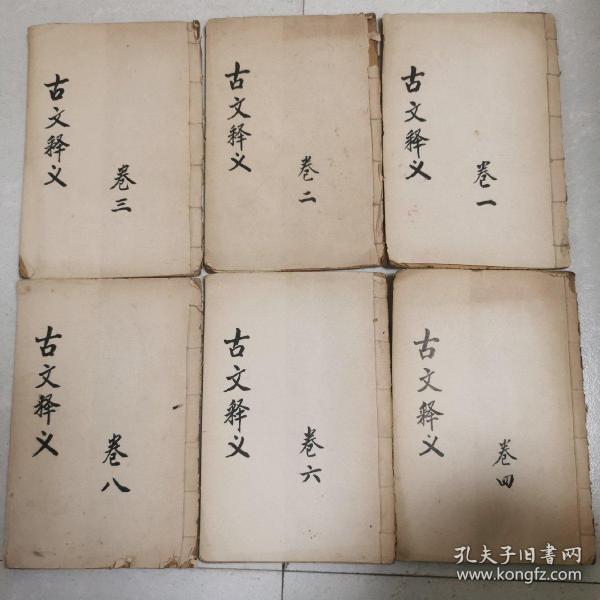 古文释义
卷一
古文释义
卷二
古文释义
卷三
古文释义
卷四
古文释义
卷六
古文释义
卷八
孔夫子旧書网
www.kongfz.com